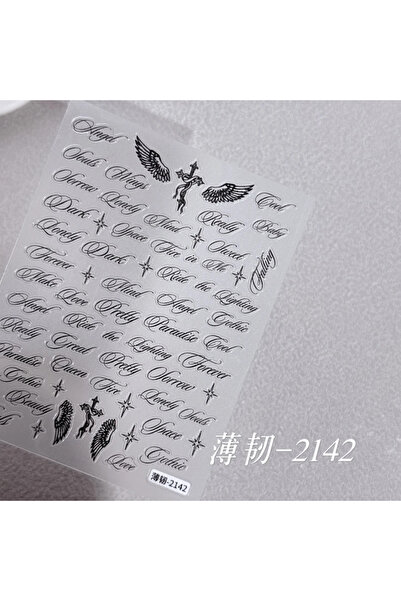 Angel
Souls Wings Cool
Sorrow Lonely Mind Really Baby
Dark Space Five in No Sweet
Lonely Dark Falling
Forever Mind Ride the Lighting
Make Love Pretty Angel Gothic
Angel Ride the Lighting Paradise Cool
Really Great Pretty Forever
Paradise Queen Five Sorrow
Gothic Lonely Souls
Beauty Space
Love Gothic
薄韧-2142
薄韧-2142